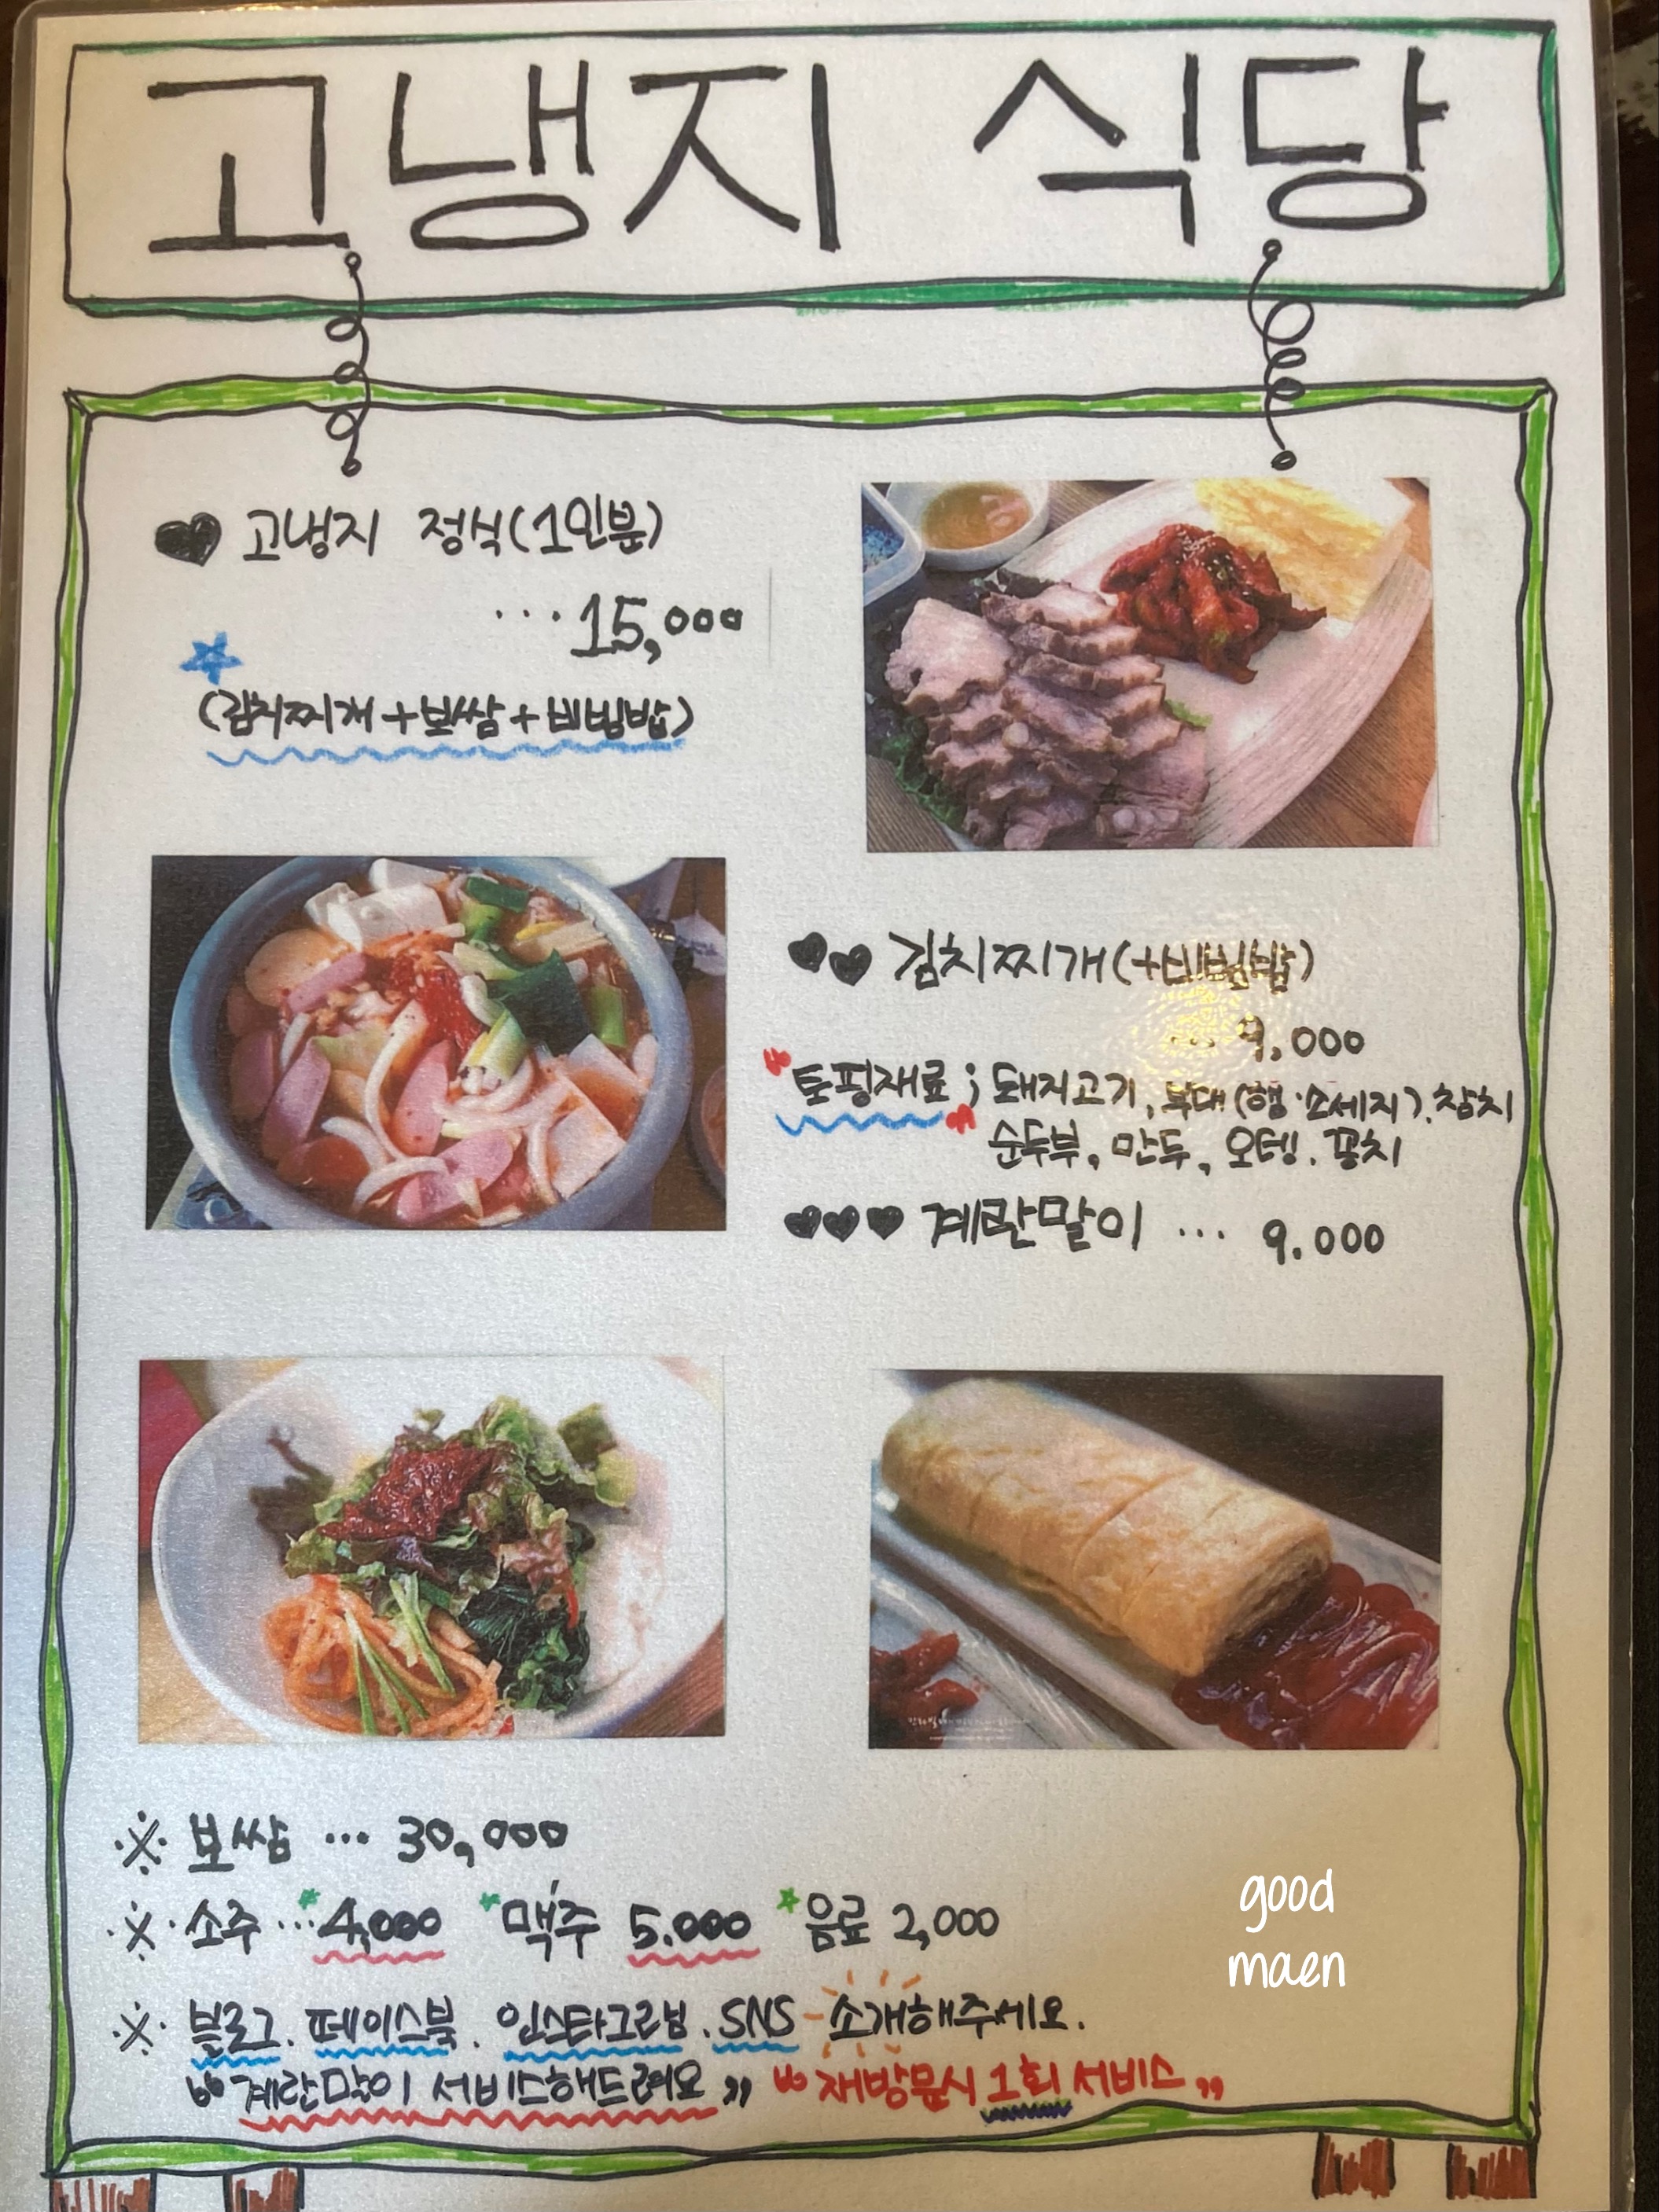 고냉지 식당
고냉지 정식(1인분)
...15,000
(김치찌개+보쌈+비빔밥)
김치찌개(+비빔밥)
... 9,000
"토핑재료" ; 돼지고기, 부대(햄·소세지), 참치
순두부, 만두, 오뎅, 꽁치
계란말이 ... 9,000
※ 보쌈 ... 30,000
※ 소주 ... 4,000 맥주 5,000 음료 2,000
※ 블로그, 페이스북, 인스타그램, SNS 소개해주세요.
"계란말이 서비스해드려요" "재방문시 1회 서비스"
good
maen